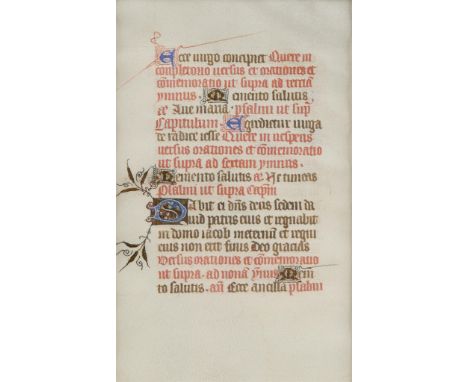 Ecce uirgo concipiet Quere in
completorio uersus et orationes et
cõmemoratio ut supra ad tertiã
ymnus. Memento salutis
⁊c̃ Aue maria. psalmi ut sup̃
Capitulum. Egredietur uirga
de radice iesse Quere in uesperis
uersus orationes et cõmemoratio
ut supra ad sextam ymnus.
Memento salutis ⁊c̃ Ne timeas
Psalmi ut supra Cap̃m
Dabit ei dñs deus sedem da
uid patris eius et regnabit
in domo iacob in eternũ et regni
eius non erit finis Deo gracias
Versus orationes et cõmemoratio
ut supra. ad nonã ymus Memẽ
to salutis. añ Ecce ancilla psalmi